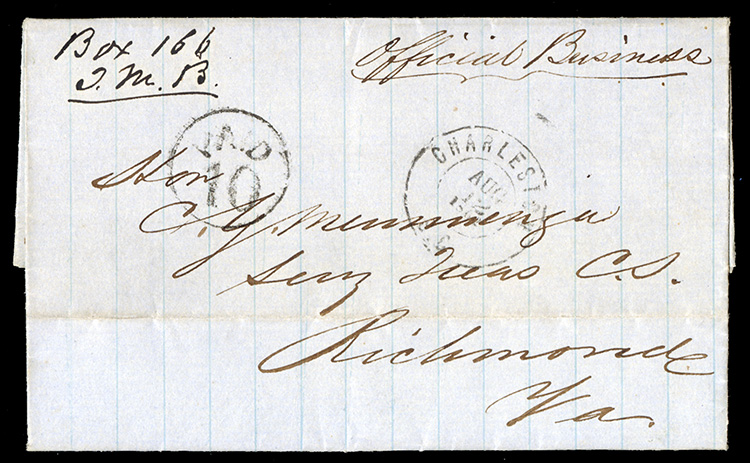 Box 166
J. M. B.
Official Business
PAID
10
CHARLESTON
AUG
12
S.C.
Hon
C. G. Memminger
Secy Treas C.S.
Richmond
Va.